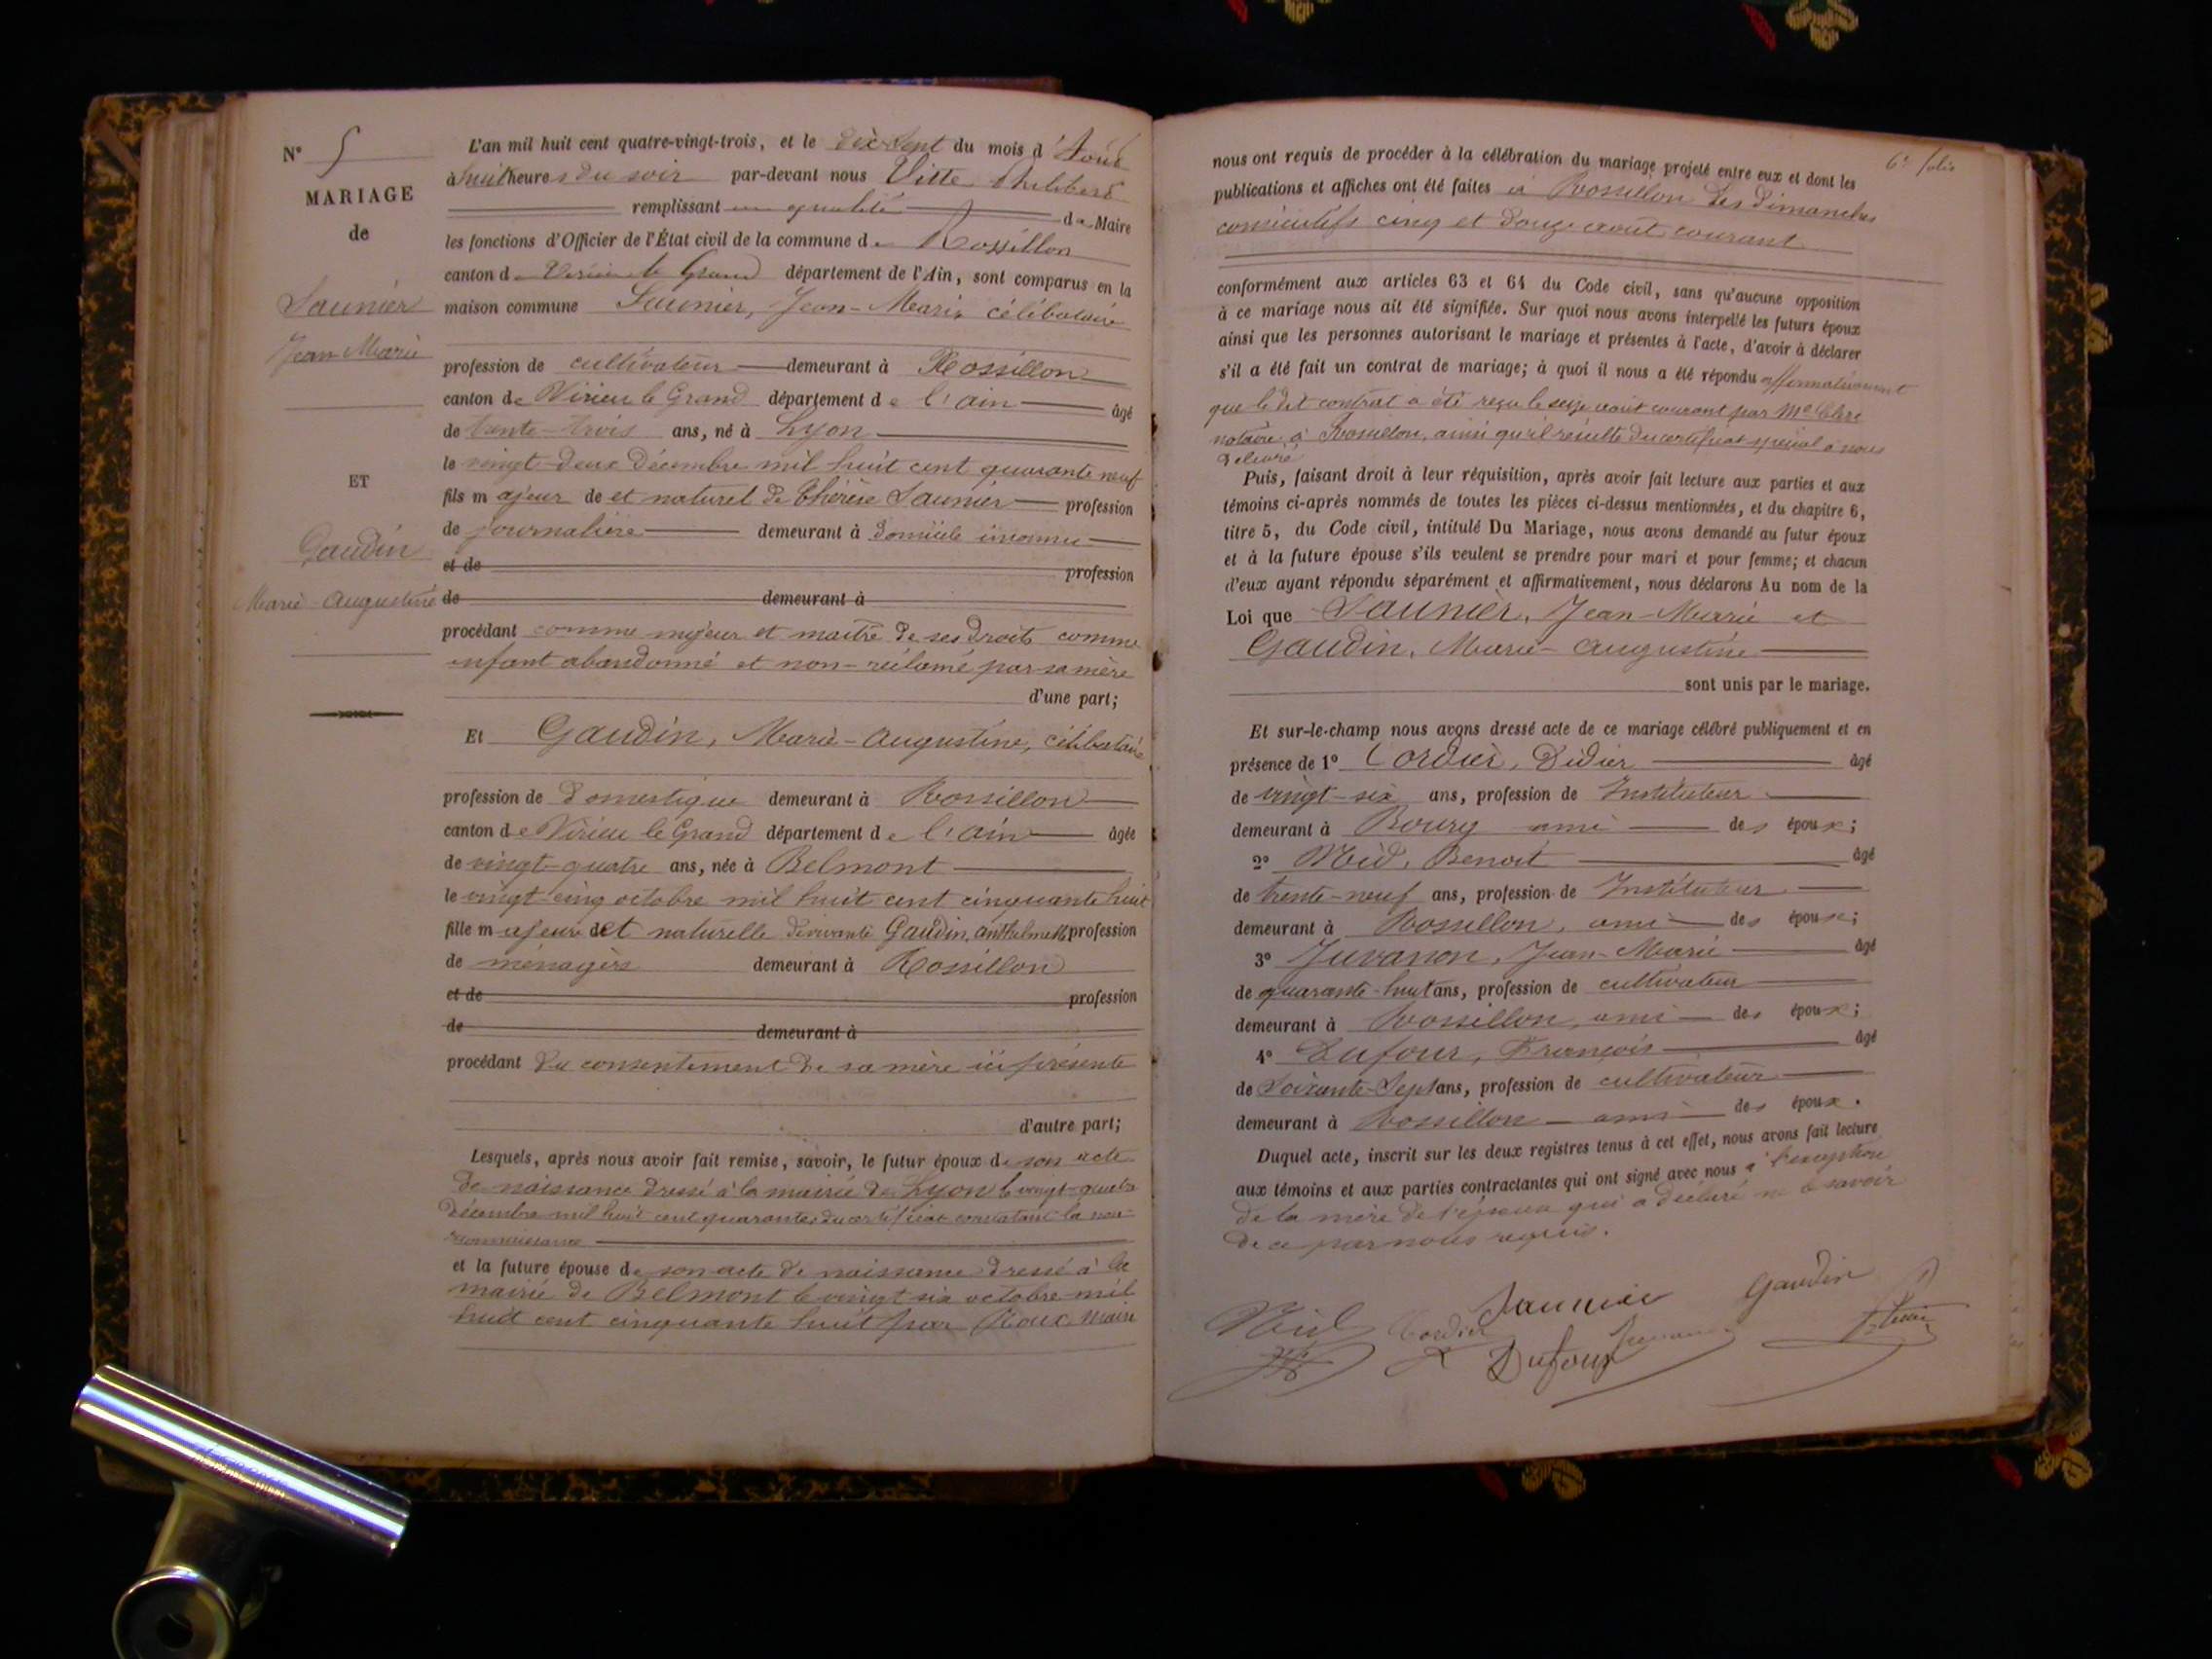 N° 5
MARIAGE
de
Saunier
Jean-Marie
ET
Gaudin
Marie-Augustine
L'an mil huit cent quatre-vingt-trois, et le dix-sept du mois d'Août
à huit heures du soir par-devant nous Vitte, Philibert
remplissant en qualité de Maire
les fonctions d'Officier de l'État civil de la commune de Rossillon
canton de Virieu le Grand département de l'Ain, sont comparus en la
maison commune Saunier, Jean-Marie célibataire
profession de cultivateur demeurant à Rossillon
canton de Virieu le Grand département de l'ain âgé
de trente-trois ans, né à Lyon
le vingt-deux décembre mil huit cent quarante neuf
fils majeur de et naturel de Thérèse Saunier profession
de journalière demeurant à domicile inconnu
et de profession
de demeurant à
procédant comme majeur et maître de ses droits comme
enfant abandonné et non-réclamé par sa mère
d'une part;
Et Gaudin, Marie-Augustine, célibataire
profession de domestique demeurant à Rossillon
canton de Virieu le Grand département de l'ain âgée
de vingt-quatre ans, née à Belmont
le vingt-cinq octobre mil huit cent cinquante huit
fille majeure et naturelle de vivante Gaudin, Anthelmette profession
de ménagère demeurant à Rossillon
et de profession
de demeurant à
procédant du consentement de sa mère ici présente
d'autre part;
Lesquels, après nous avoir fait remise, savoir, le futur époux de son acte
de naissance dressé à la mairie de Lyon le vingt-quatre
décembre mil huit cent quarante du certificat constatant la non-
reconnaissance
et la future épouse de son acte de naissance dressé à la
mairie de Belmont le vingt six octobre mil
huit cent cinquante huit par Roux maire
6e folio
nous ont requis de procéder à la célébration du mariage projeté entre eux et dont les
publications et affiches ont été faites à Rossillon les dimanches
consécutifs cinq et douze août courant
conformément aux articles 63 et 64 du Code civil, sans qu'aucune opposition
à ce mariage nous ait été signifiée. Sur quoi nous avons interpellé les futurs époux
ainsi que les personnes autorisant le mariage et présentes à l'acte, d'avoir à déclarer
s'il a été fait un contrat de mariage; à quoi il nous a été répondu affirmativement
que le dit contrat a été reçu le seize août courant par Me Clerc
notaire à Rossillon, ainsi qu'il résulte du certificat spécial à nous
délivré
Puis, faisant droit à leur réquisition, après avoir fait lecture aux parties et aux
témoins ci-après nommés de toutes les pièces ci-dessus mentionnées, et du chapitre 6,
titre 5, du Code civil, intitulé Du Mariage, nous avons demandé au futur époux
et à la future épouse s'ils veulent se prendre pour mari et pour femme; et chacun
d'eux ayant répondu séparément et affirmativement, nous déclarons Au nom de la
Loi que Saunier, Jean-Marie et
Gaudin, Marie-Augustine
sont unis par le mariage.
Et sur-le-champ nous avons dressé acte de ce mariage célébré publiquement et en
présence de 1° Cordier, Didier âgé
de vingt-six ans, profession de Instituteur
demeurant à Bourg ami des époux;
2° Nid, Benoit âgé
de trente-neuf ans, profession de Instituteur
demeurant à Rossillon, ami des époux;
3° Juvanon, Jean-Marie âgé
de quarante-huit ans, profession de cultivateur
demeurant à Rossillon, ami des époux;
4° Dufour, François âgé
de Soixante-Sept ans, profession de cultivateur
demeurant à Rossillon ami des époux.
Duquel acte, inscrit sur les deux registres tenus à cet effet, nous avons fait lecture
aux témoins et aux parties contractantes qui ont signé avec nous à l'exception
de la mère de l'épouse qui a déclaré ne le savoir
de ce par nous requis.
Saunier Gaudin
Nid Cordier
Dufour